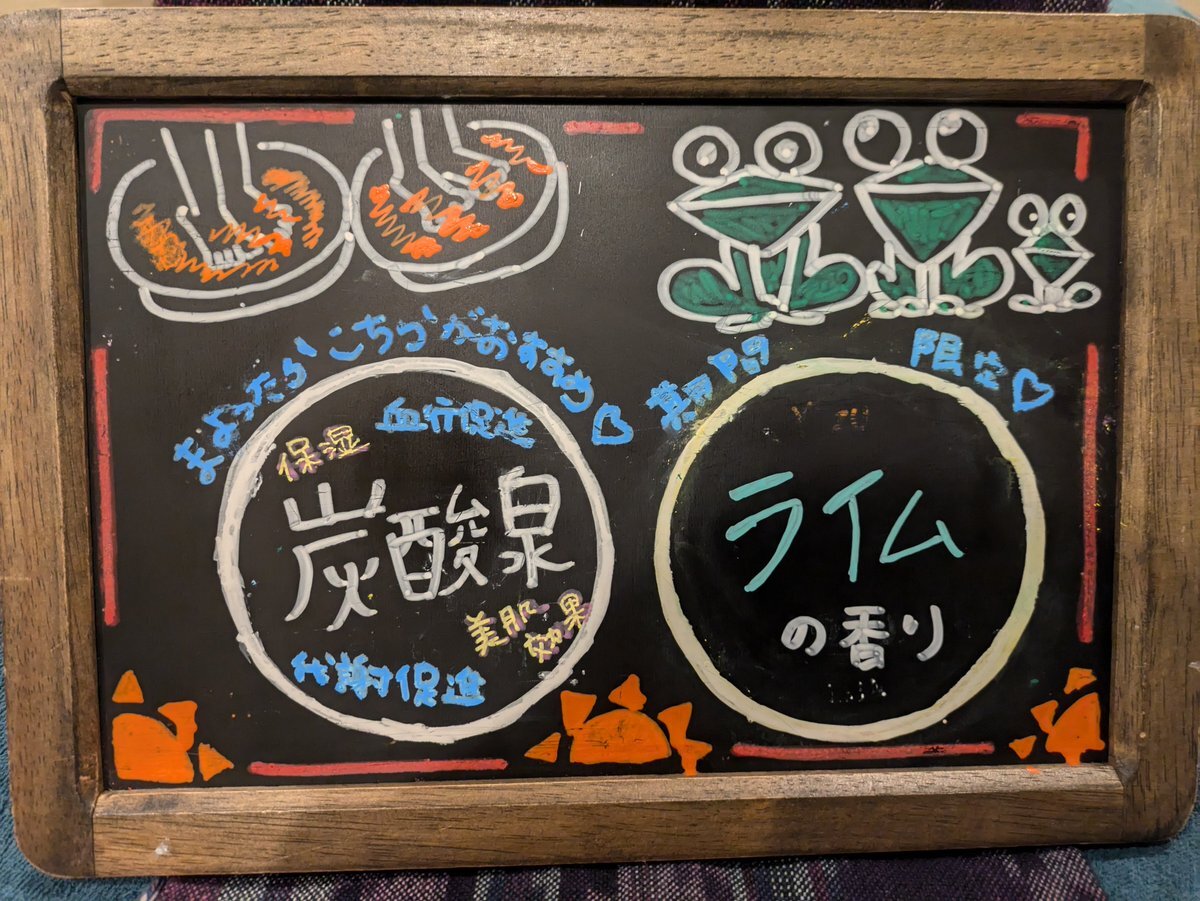 まよったら こちらがおすすめ♡
保湿
血行促進
炭酸泉
美肌
効果
代謝促進
期間 限定♡
ライム
の香り